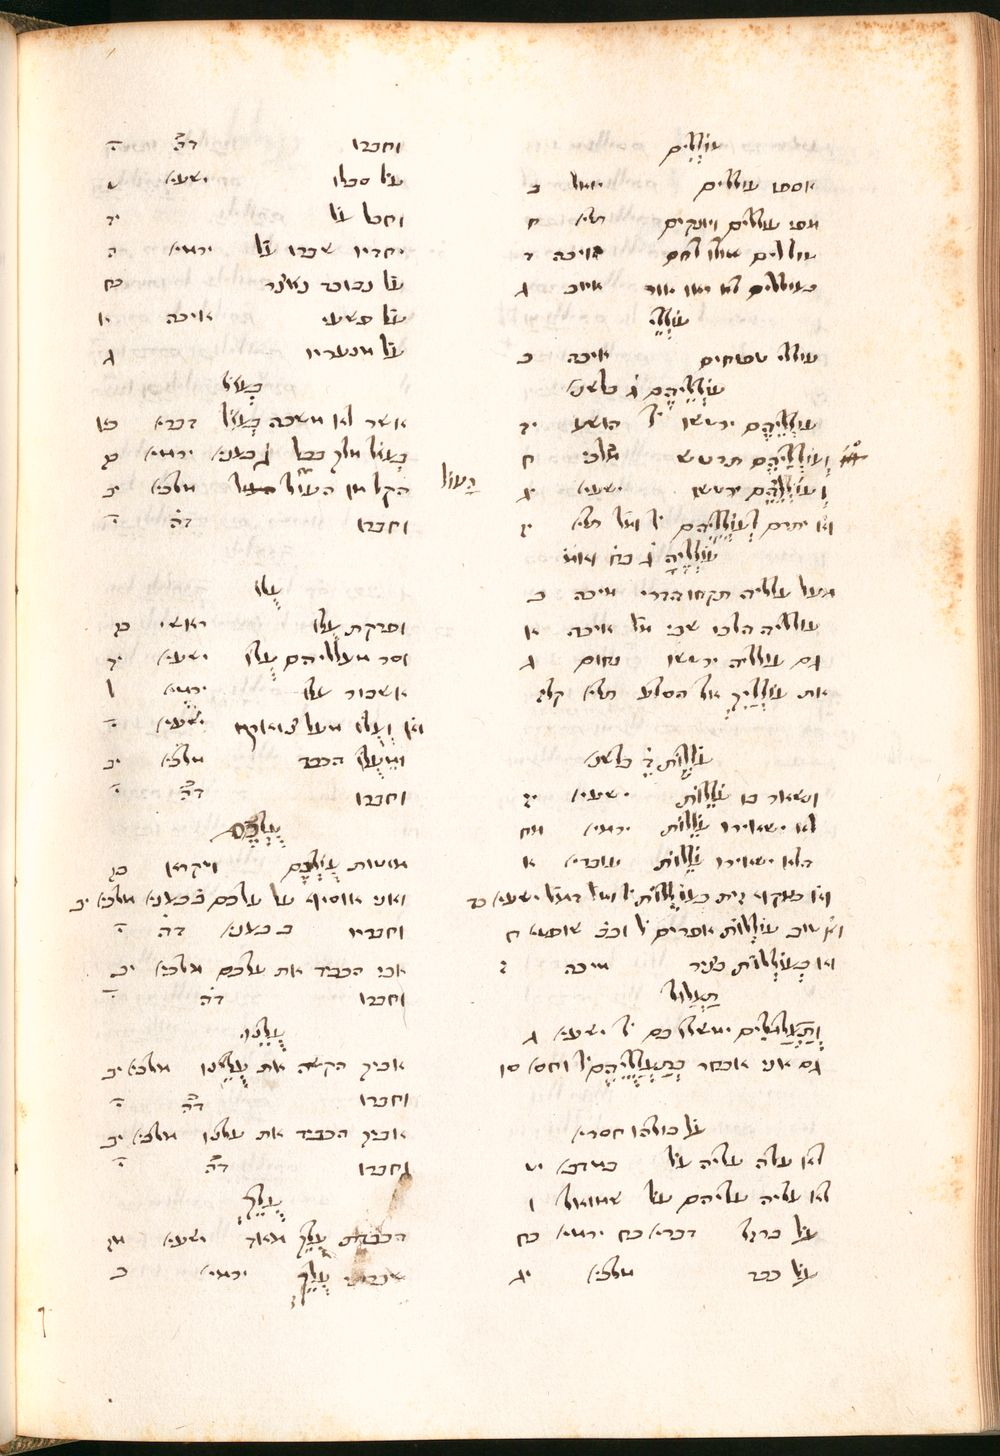 עוֹלְלִים
אספו עוללים יואל ב
מפי עוללים ויונקים תלי׳ ח
עוללים שאלו לחם איכה ד
כעוללים לא ראו אור איוב ג
עוֹלְלֵי
עוללי טפוחים איכה ב
עוֹלְלֵיהֶם ג׳ בלשנ׳
עוֹלְלֵיהֶם ירטשו ל׳ הושע יד
וְעוֹלְלֵיהֶם תרטש מלכי׳ ח
וְעוֹלְלֵיהֶם ירטשו ישעי׳ יג
יתרם לְעוֹלְלֵיהֶם ל׳ ומל׳ תלי׳ יז
עוֹלָלֶיהָ ג׳
מעל עלליה תקחו הדרי מיכה ב
עולליה הלכו שבי איכה א
גם עלליה ירטשו נחום ג
את עוֹלָלַיִךְ אל הסלע תלי׳ קלז
עֹלֵלוֹת בלשנ׳
ונשאר בו עֹלֵלוֹת ישעי׳ יז
לא ישאירו עֹלֵלוֹת ירמי׳ מט
הלא ישאירו עֹלֵלוֹת עובדי׳ א
כנקוף זית כעוֹלֵלוֹת ל׳ ומל׳ ישעי׳ כד
טוב עוֹלְלוֹת אפרים ל׳ שופטי׳ ח
כְּעוֹלְלוֹת בציר מיכה ז
תַעֲלוּל
וְתַעֲלוּלִים ימשלו בם ל׳ ישעי׳ ג
גם אני אבחר בְּתַעֲלוּלֵיהֶם ל׳ וחס׳ סו
עֹל כולהו חסרי׳
לא עלה עליה עֹל במדב׳ יט
לא עלה עליהם עֹל שמואל ו
עֹל ברזל דברי׳ כח ירמי׳ כח
עֹל כבד מלכי׳ יב
וחברו דה׳ י
עֹל סבלו ישעי׳ ט
וחבל עֹל יד
יחדיו שברו עֹל ירמי׳ ה
עֹל נבוכד נאצר כח
עֹל פשעי איכה א
עֹל מנעוריו ג
בְּעֹל
אשר לא משכה בְּעֹל דברי׳ כא
בְּעֹל מלך בבל ירמי׳ כז
הקל מן העֹל מלכי׳ יב
הָעֹל
וחברו דה׳ י
עֻלּוֹ
ופרקת עֻלּוֹ בראשי׳ כז
וסר מעליהם עֻלּוֹ ישעי׳ יד
אשבור עֻלּוֹ ירמי׳ ל
וְעֻלּוֹ מעל צוארך ישעי׳ י
וּמֵעֻלּוֹ הכבד מלכי׳ יב
וחברו דה׳ י
עֻלְּכֶם
מוטות עֻלְּכֶם ויקרא כו
ואני אוסיף על עלכם ב׳ בענינ׳ מלכי׳ יב
וחבריו ב בענינ׳ דה׳ י
אבי הכביד את עלכם מלכי׳ יב
וחברו דה׳ י
עֻלֵּנוּ
אביך הקשה את עֻלֵּנוּ מלכי׳ יב
וחברו דה׳ י
אביך הכביד את עלנו מלכי׳ יב
וחברו דה׳ י
עֻלֵּךְ
הכבדת עֻלֵּךְ מאד ישעי׳ מז
שברתי עֻלֵּךְ ירמי׳ ב